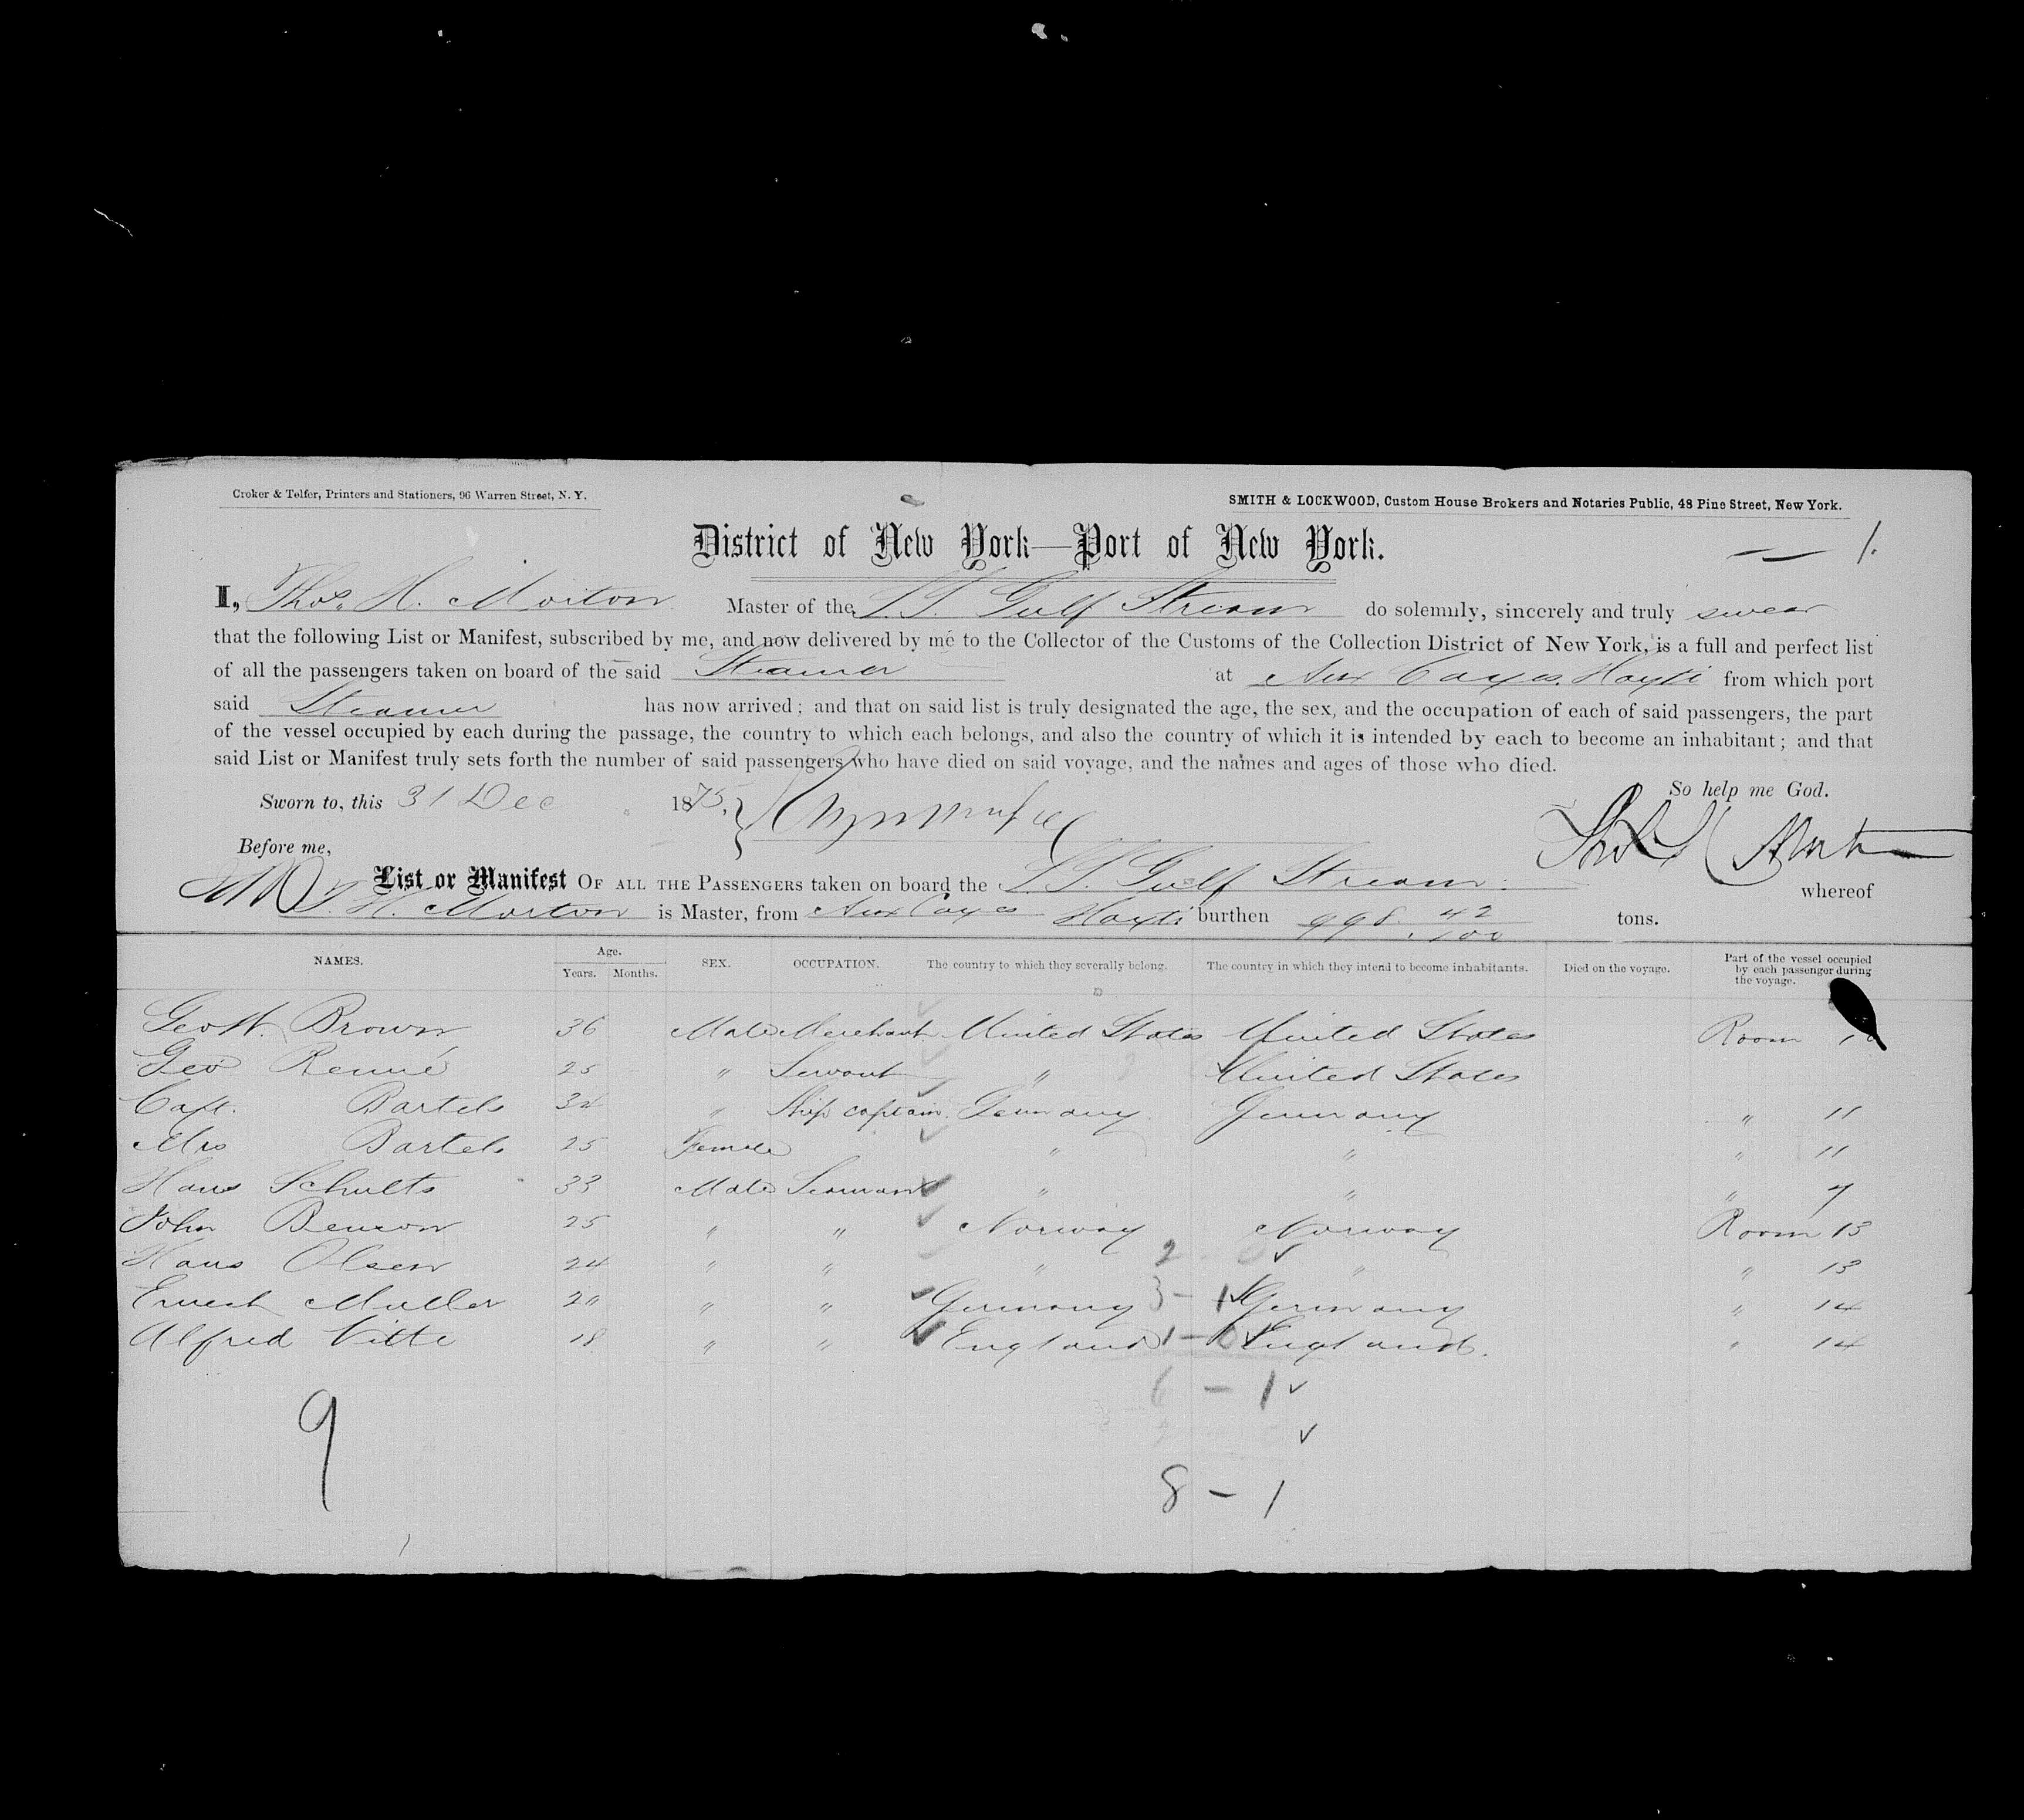 Croker & Telfer, Printers and Stationers, 96 Warren Street, N. Y.
SMITH & LOCKWOOD, Custom House Brokers and Notaries Public, 48 Pine Street, New York.
District of New York—Port of New York.
1.
I, Thos. H. Morton Master of the S.S. Gulf Stream do solemnly, sincerely and truly swear
that the following List or Manifest, subscribed by me, and now delivered by me to the Collector of the Customs of the Collection District of New York, is a full and perfect list
of all the passengers taken on board of the said Steamer at Aux Cayes. Hayti from which port
said Steamer has now arrived; and that on said list is truly designated the age, the sex, and the occupation of each of said passengers, the part
of the vessel occupied by each during the passage, the country to which each belongs, and also the country of which it is intended by each to become an inhabitant; and that
said List or Manifest truly sets forth the number of said passengers who have died on said voyage, and the names and ages of those who died.
So help me God.
Sworn to, this 31 Dec 1875,
Before me,
List or Manifest OF ALL THE PASSENGERS taken on board the S.S. Gulf Stream. whereof
T. H. Morton is Master, from Aux Cayes Hayti burthen 998. 42/100 tons.
NAMES. Age. Years. Months. SEX. OCCUPATION. The country to which they severally belong. The country in which they intend to become inhabitants. Died on the voyage. Part of the vessel occupied by each passenger during the voyage.
Geo W. Brown 36 Male Merchant United States United States Room
Geo Renné 25 " Servant " United States
Capt. Bartels 34 " Ship captain Germany Germany " 11
Mrs Bartels 25 Female " " " 11
Hans Schults 33 Male Seaman " " " 7
John Benson 25 " " Norway Norway Room 13
Hans Olsen 24 " " " 2 " " 13
Ernest Muller 20 " " Germany 3 - 1 Germany " 14
Alfred Vitte 18 " " England 1 - 0 England. " 14
6 - 1
9
8 - 1